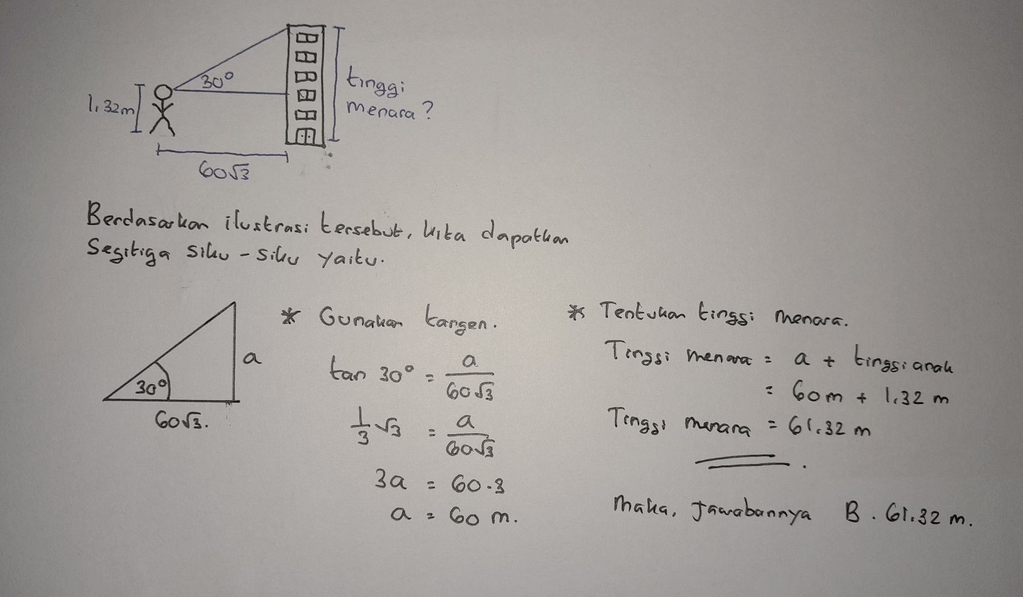 30°
1,32m
tinggi
menara?
60√3
Berdasarkan ilustrasi tersebut, kita dapatkan
Segitiga siku-siku yaitu.
30°
a
60√3.
* Gunakan tangen.
tan 30° = a/60√3
1/3 √3 = a/60√3
3a = 60.3
a = 60 m.
* Tentukan tinggi menara.
Tinggi menara = a + tinggi anak
= 60m + 1,32 m
Tinggi menara = 61,32 m
Maka, Jawabannya B. 61,32 m.